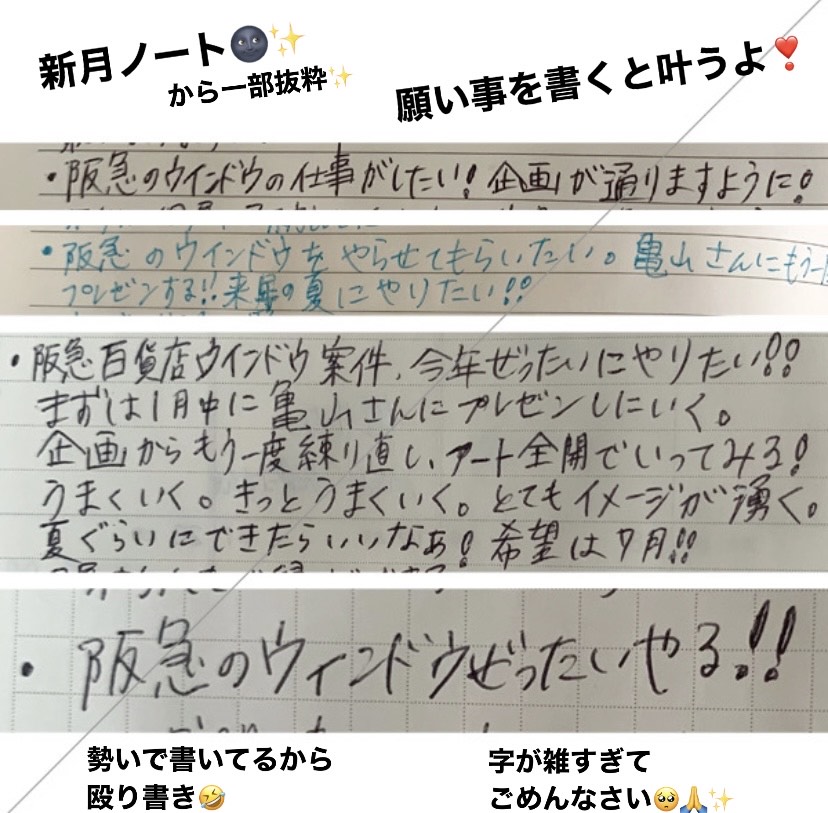 新月ノート🌚✨
から一部抜粋✨
願い事を書くと叶うよ❣️
・阪急のウインドウの仕事がしたい!企画が通りますように!
・阪急のウインドウをやらせてもらいたい。亀山さんにもう一
プレゼンする!!来年の夏にやりたい!!
・阪急百貨店ウインドウ案件、今年ぜったいにやりたい!!
まずは1月中に亀山さんにプレゼンしにいく。
企画からもう一度練り直し、アート全開でいってみる!
うまくいく。きっとうまくいく。とてもイメージが湧く。
夏ぐらいにできたらいいなぁ!希望は7月!!
・阪急のウィンドウぜったいやる!!
勢いで書いてるから
殴り書き🤣
字が雑すぎて
ごめんなさい🥺🙏✨